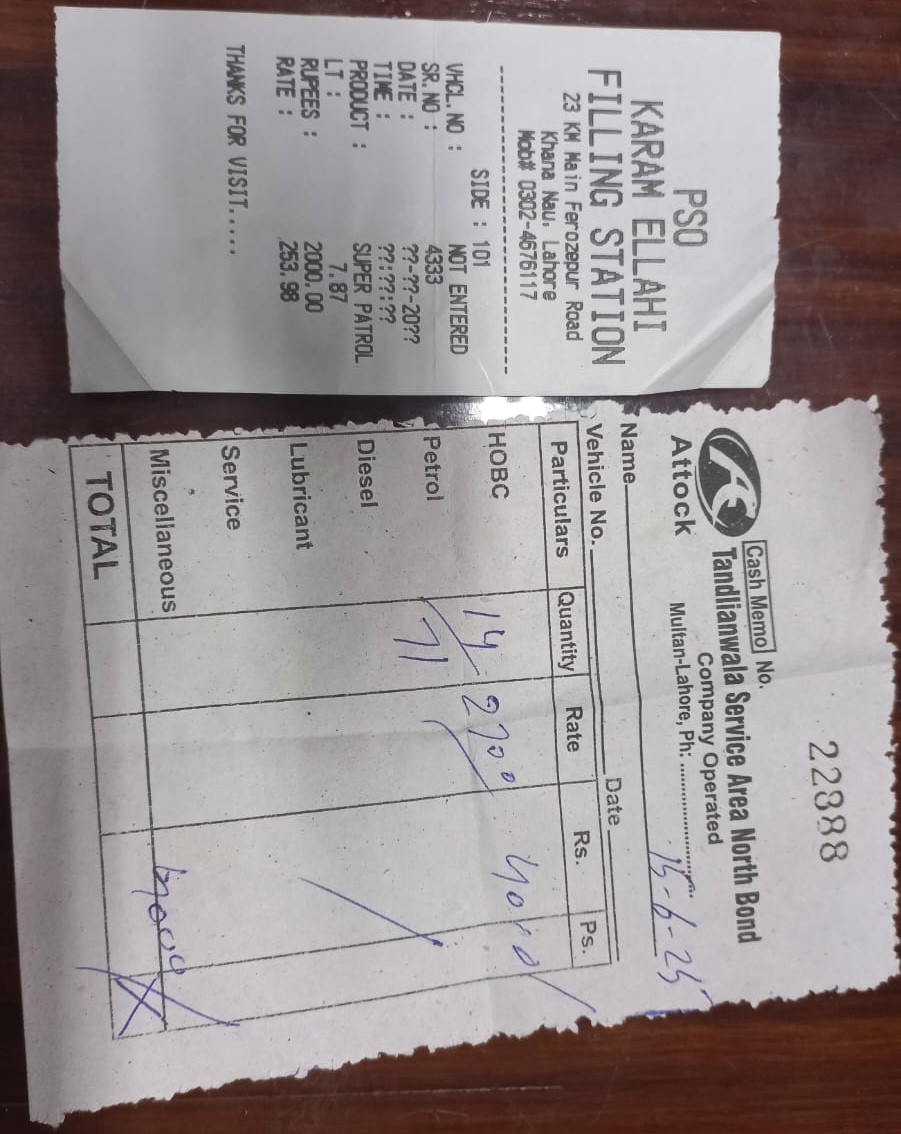 PSO
KARAM ELLAHI
FILLING STATION
23 KM Main Ferozepur Road
Khana Nau, Lahore
Mob# 0302-4676117
SIDE : 101
VHCL. NO : NOT ENTERED
SR. NO : 4333
DATE : ??-??-20??
TIME : ??:??:??
PRODUCT : SUPER PATROL
LT : 7.87
RUPEES : 2000.00
RATE : 253.98
THANKS FOR VISIT.....
22888
Cash Memo No.
Tandlianwala Service Area North Bond
Company Operated
Attock Multan-Lahore, Ph:
Name 15-6-25
Vehicle No. Date
Particulars Quantity Rate Rs. Ps.
HOBC 14 270
Petrol 71
Diesel
Lubricant
Service
Miscellaneous 4000
TOTAL